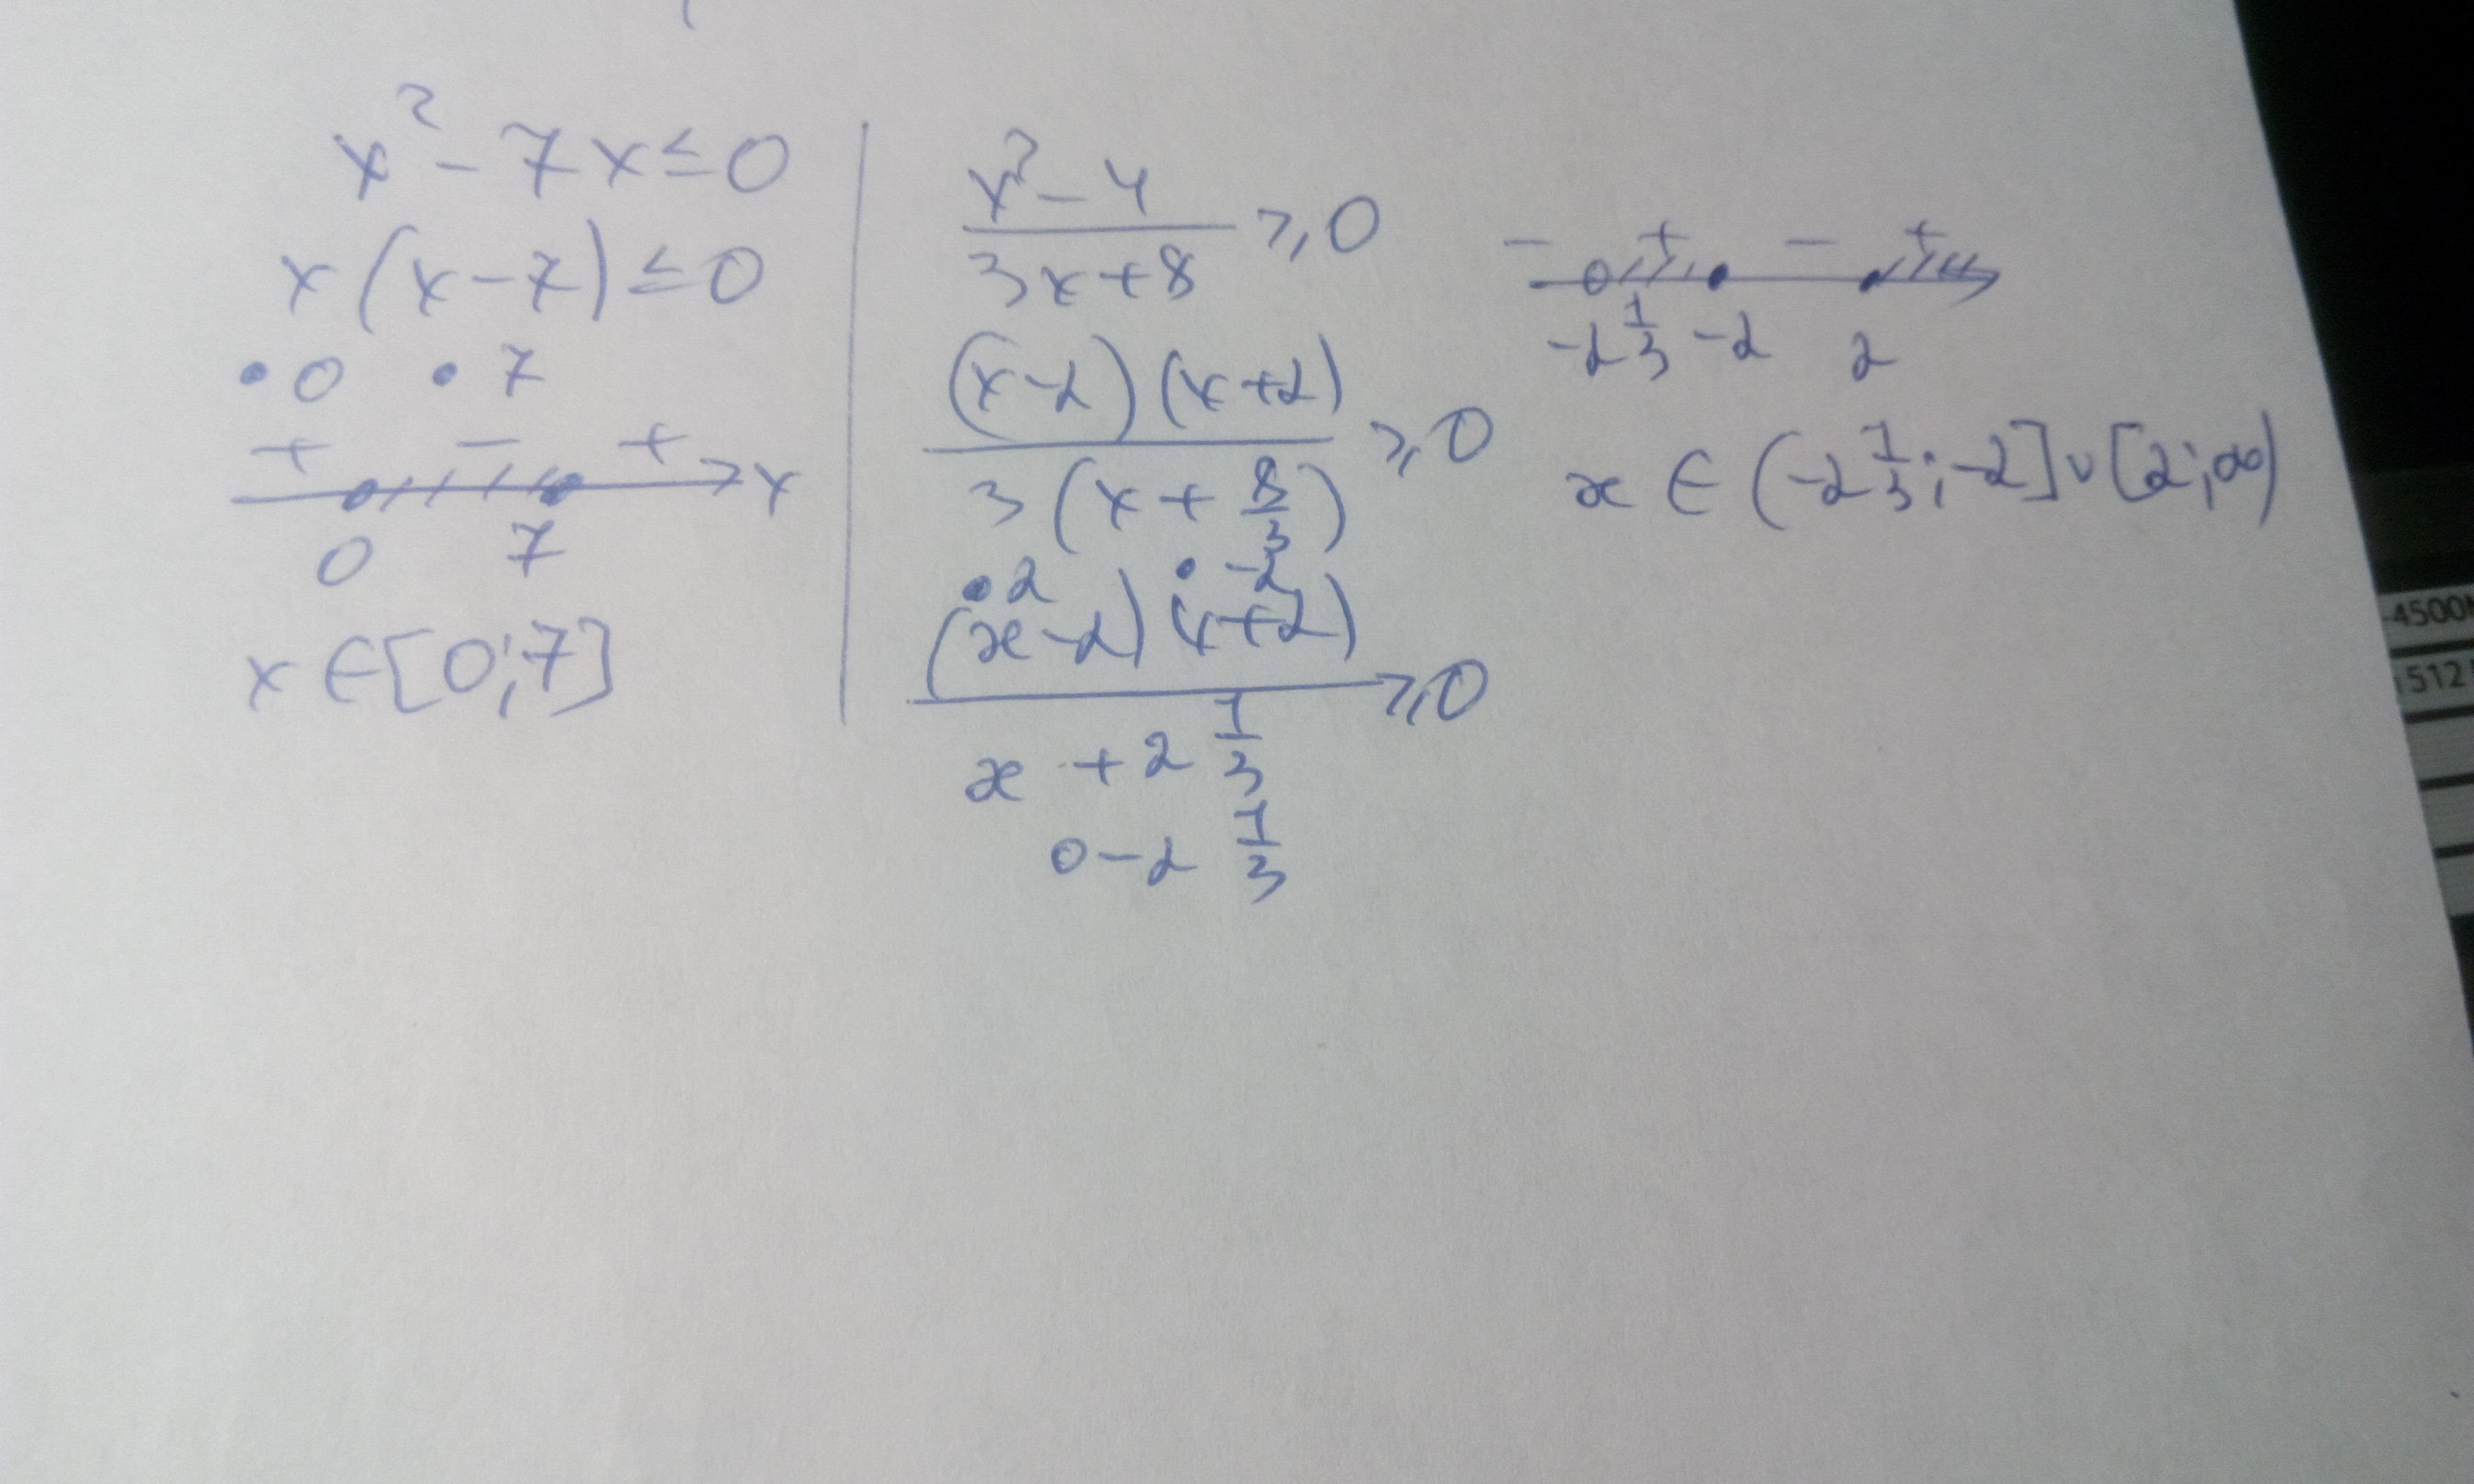 x² - 7x ≤ 0
x(x-7) ≤ 0
• 0 • 7
+ - + x
0 7
x ∈ [0;7]
(x² - 4)/(3x+8) ≥ 0
((x-2)(x+2))/(3(x+8/3)) ≥ 0
• 2 • -2
((x-2)(x+2))/(x + 2 1/3) ≥ 0
0 -2 1/3
- + - +
-2 1/3 -2 2
x ∈ (-2 1/3; -2] ∪ [2; ∞)
-4500
512